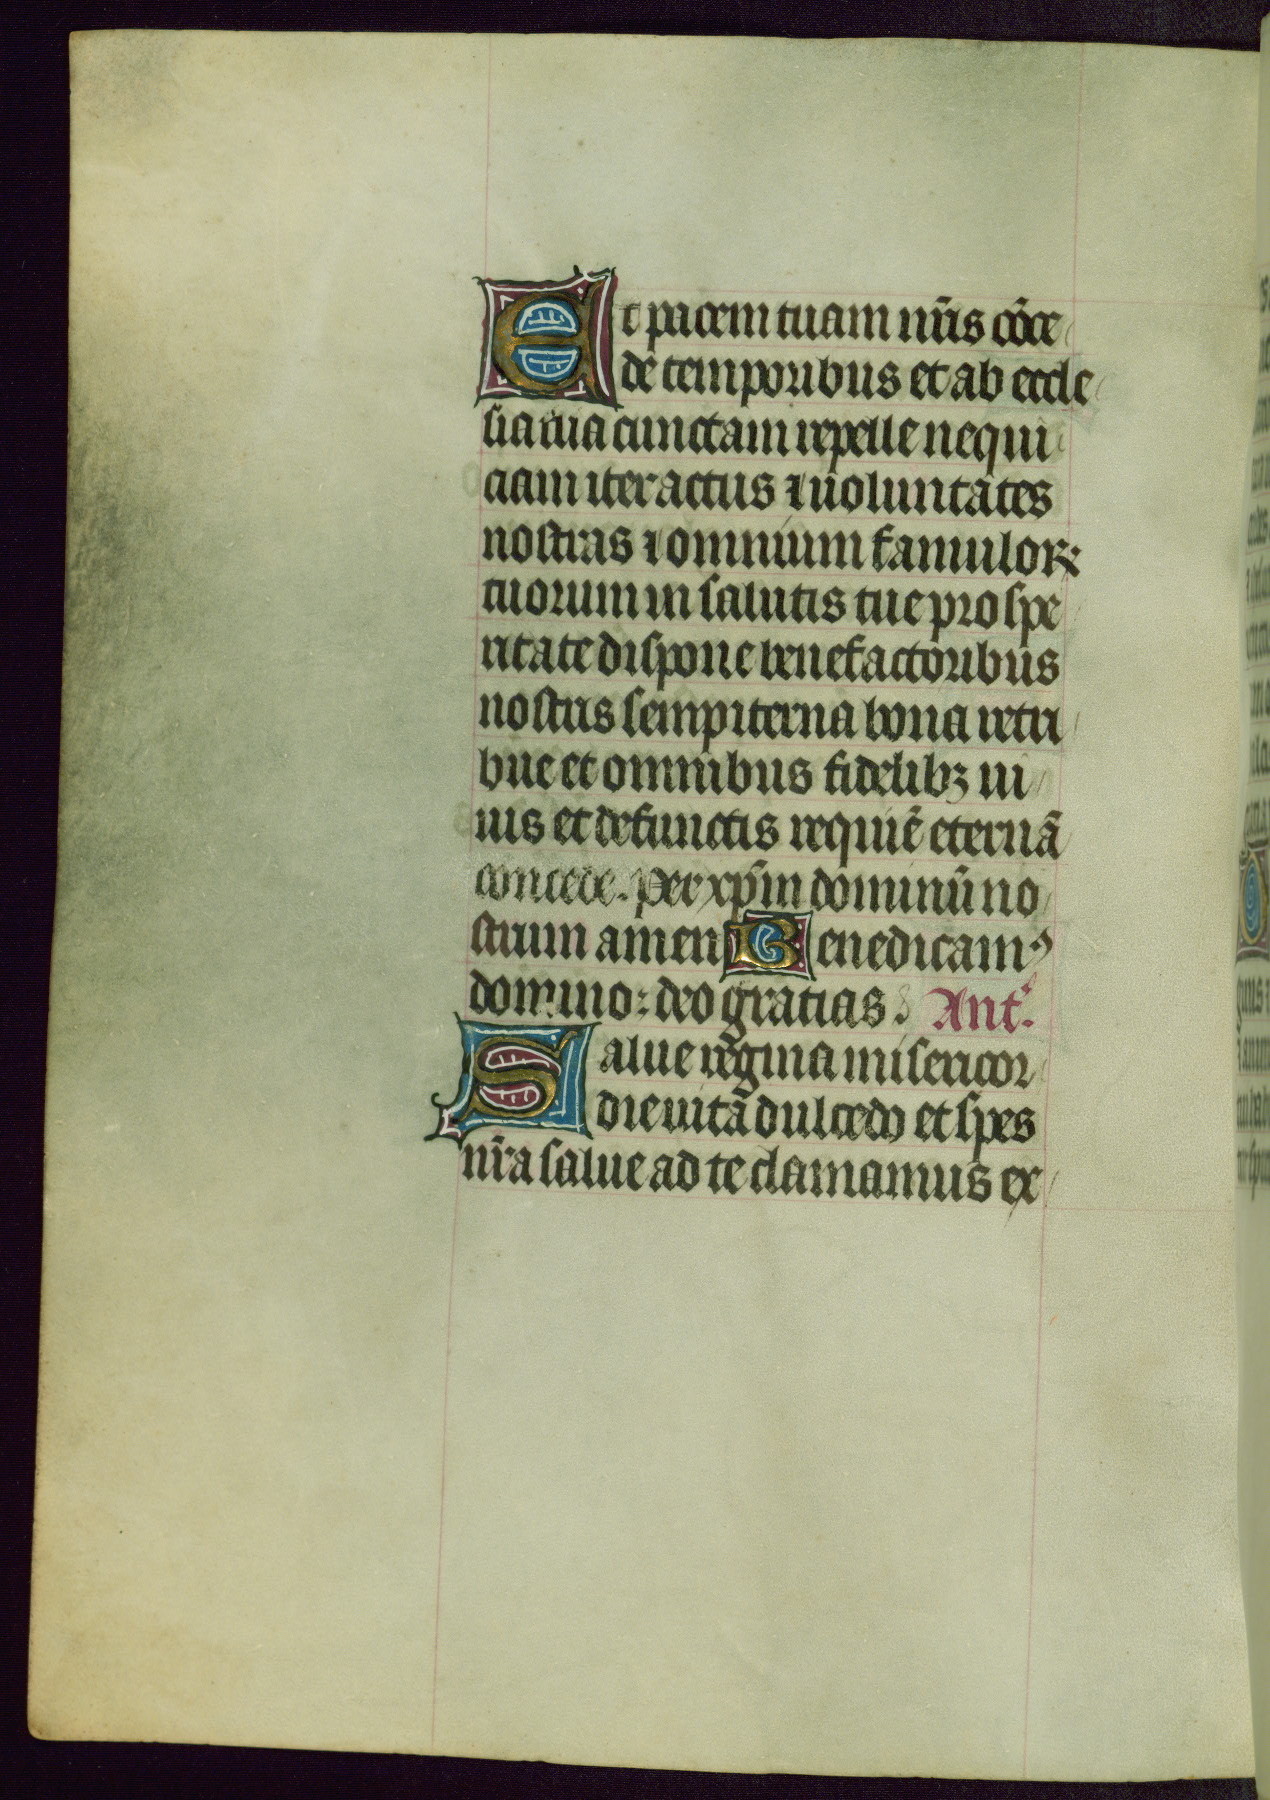 Et pacem tuam nr̄is cōce
de temporibus et ab eccle
sia tua cunctam repelle nequi
ciam iter actus ⁊ uoluntates
nostras ⁊ omnium famulorꝝ
tuorum in salutis tue prospe
ritate dispone benefactoribus
nostris sempiterna bona retri
bue et omnibus fidelibꝫ ui
uis et defunctis requiē eternā
concede. per xp̄m dominū no
strum amen Benedicamꝰ
domino: deo gratias. Ant.
Salue regina misericor
die uitā dulcedo et spes
nr̄a salue ad te clamamus ex